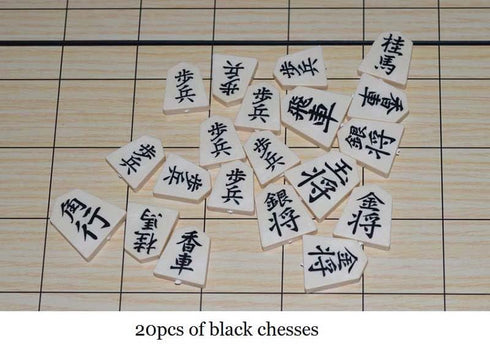 桂馬
歩兵
歩兵
歩兵
香車
歩兵
飛車
歩兵
銀将
歩兵
歩兵
歩兵
歩兵
王将
角行
桂馬
香車
銀将
金将
金将
20pcs of black chesses